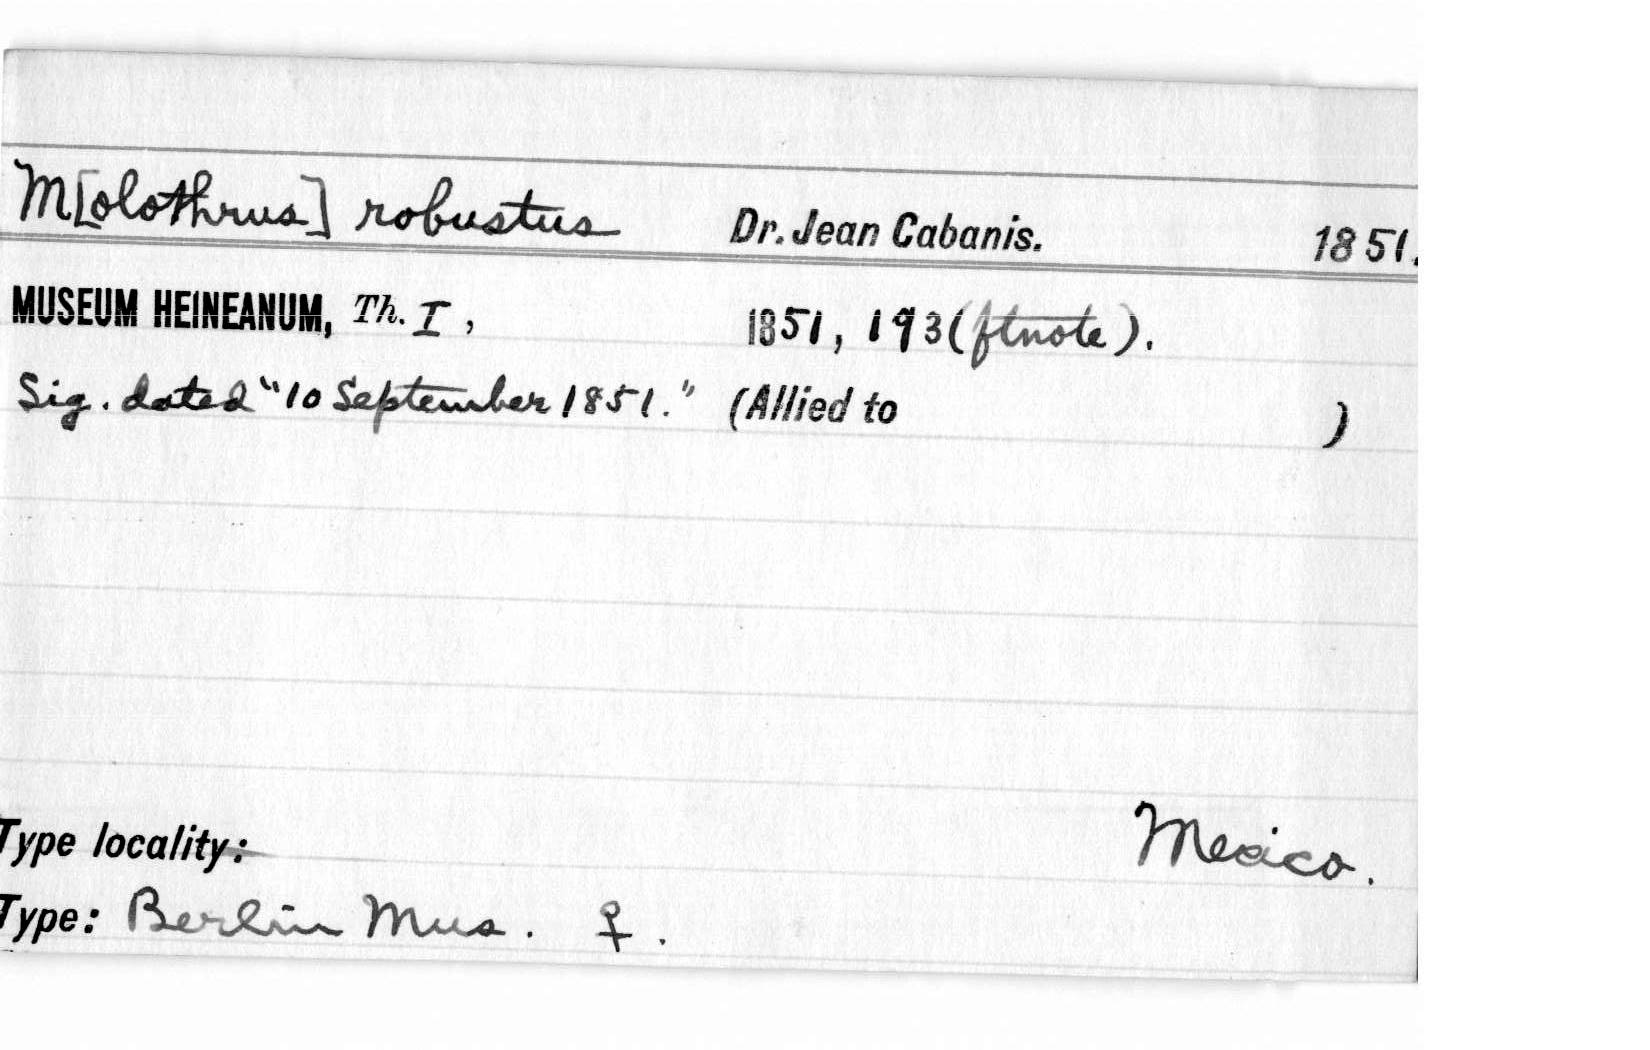 M[olothrus] robustus Dr. Jean Cabanis. 1851.
MUSEUM HEINEANUM, Th. I, 1851, 193 (ftnote).
Sig. dated "10 September 1851." (Allied to )
Type locality: Mexico.
Type: Berlin Mus. ♀.